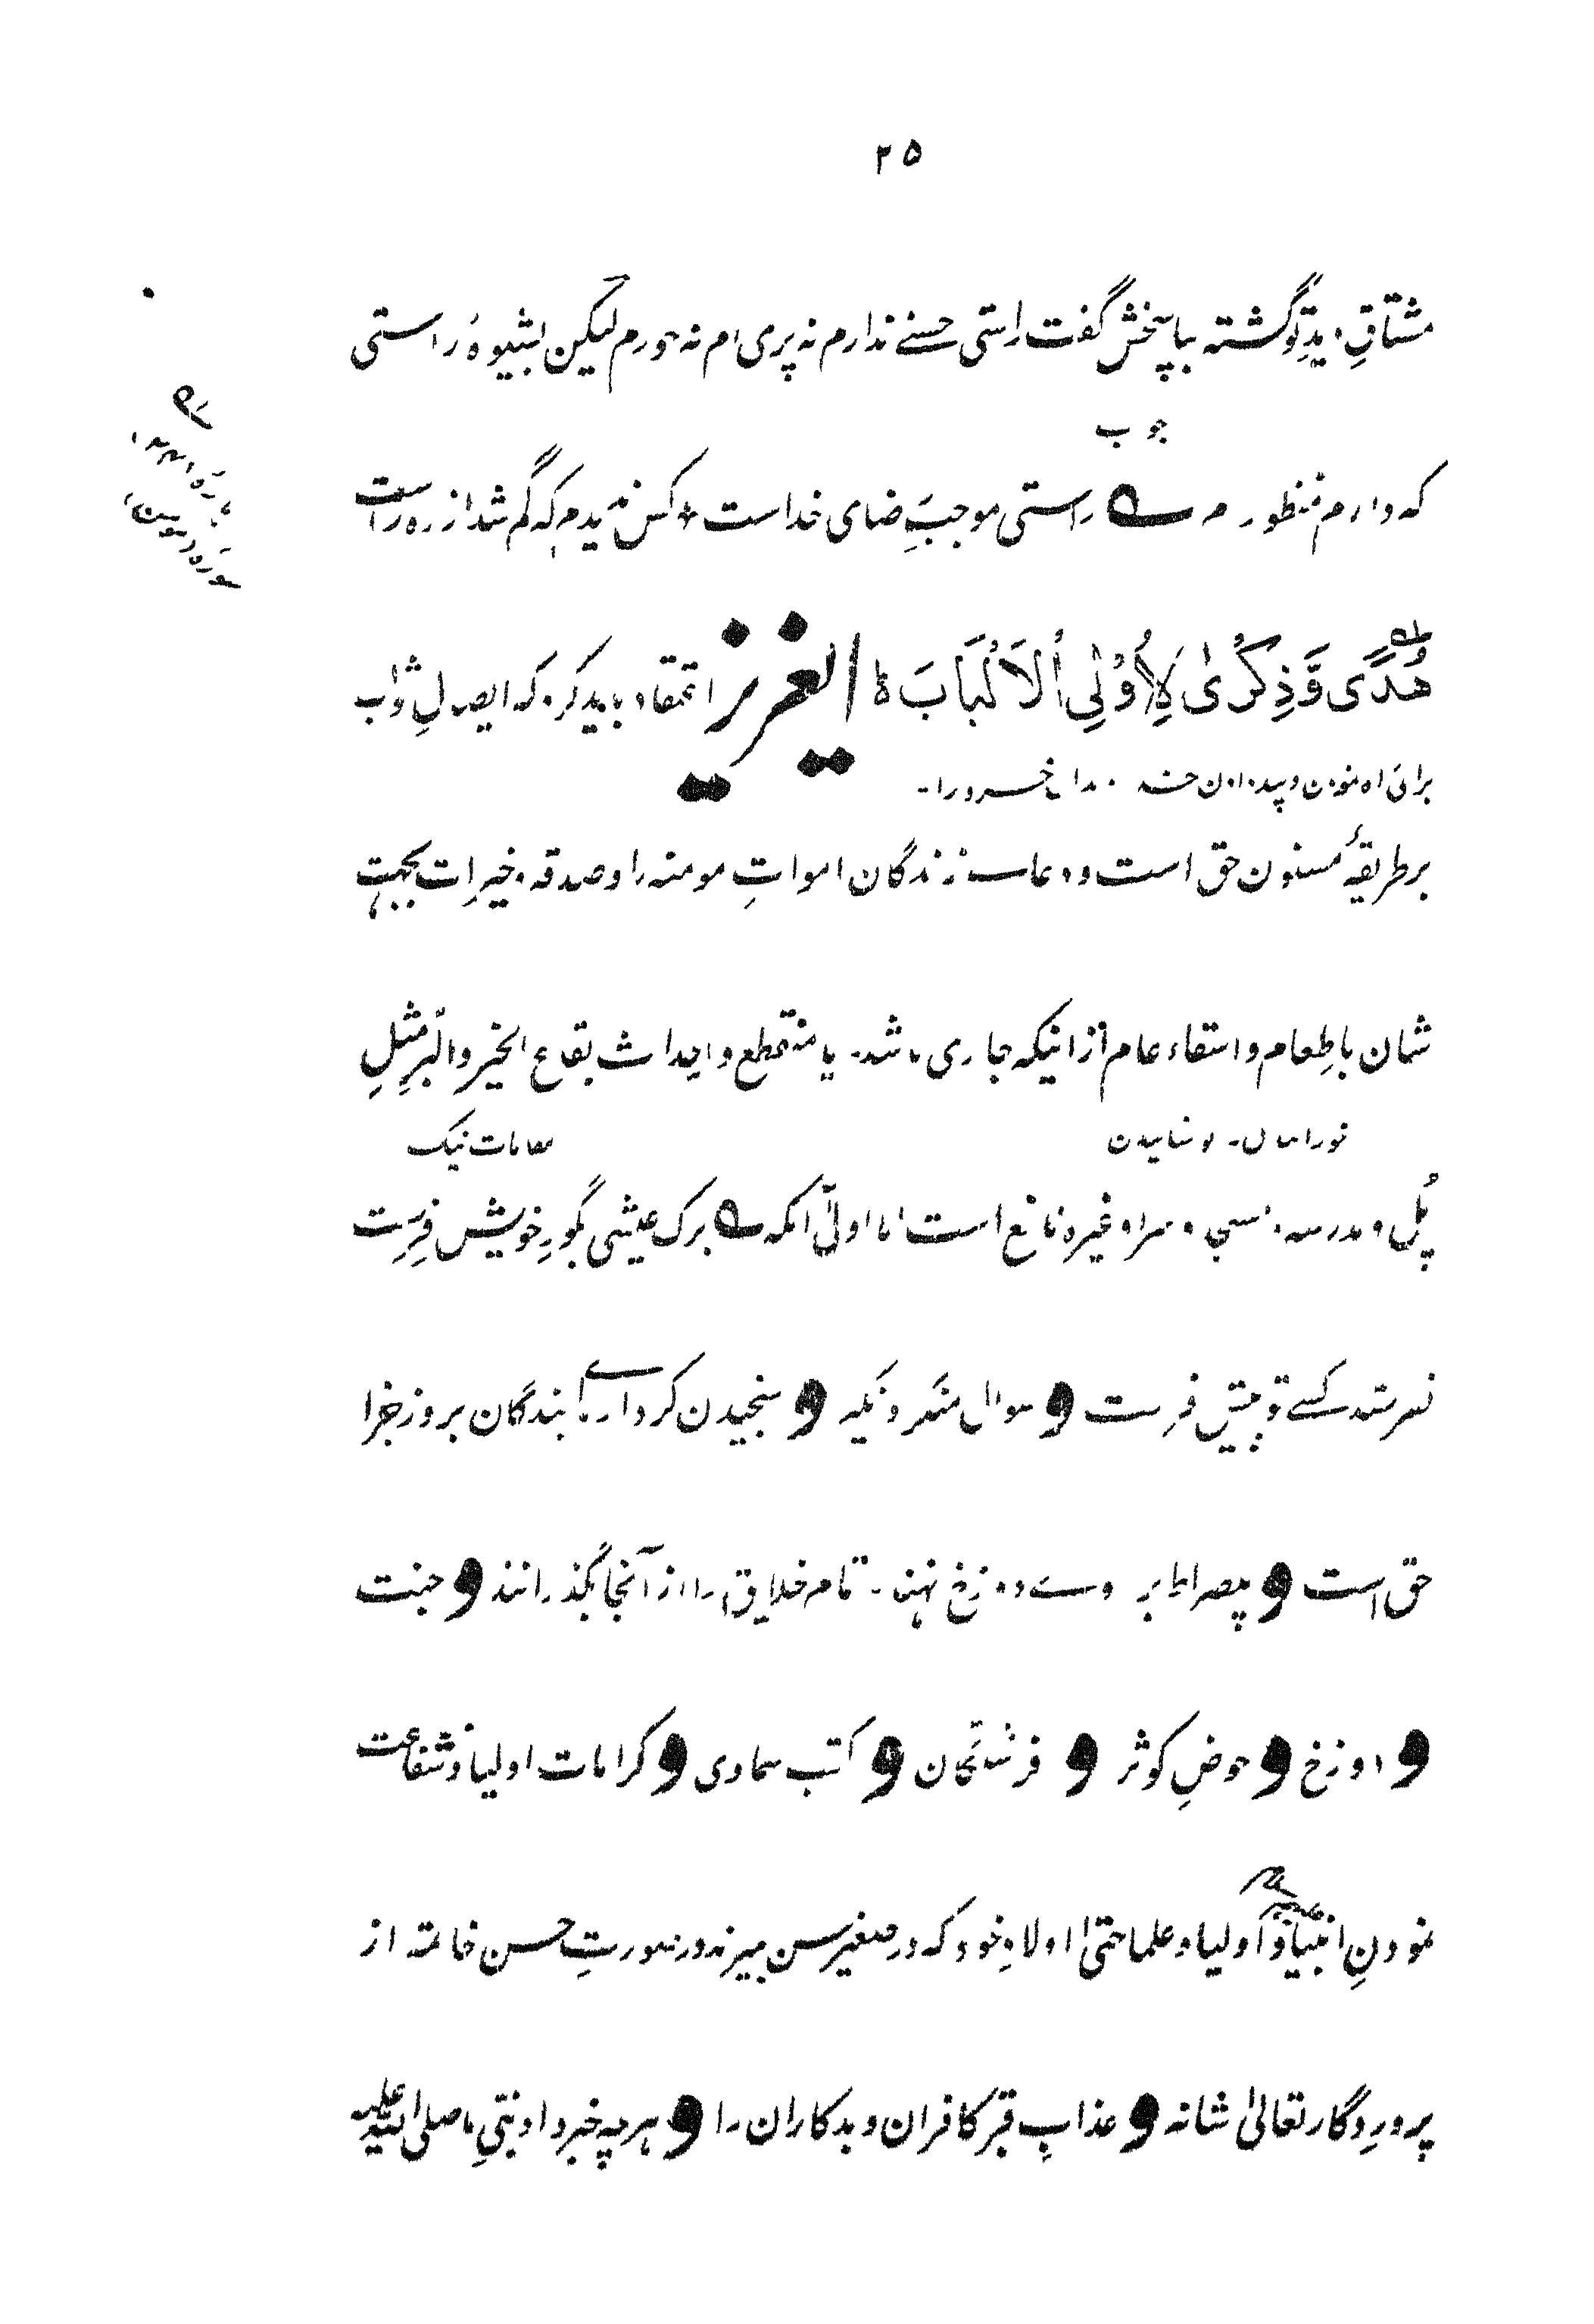 ۲۵
مشتاقِ دیدِ تو گشته بپاسخش گفت راستی حسنے ندارم نہ پری ام نہ حورم لیکن بشیوهٔ راستی
خوب
که دارم منظورم ؎ راستی موجبِ رضای خداست * کس ندیدم که گم شد از ره راست
هُدًى وَّذِكْرٰى لِاُولِى الْاَلْبَابِ ه ایعزیز اعتقاد باید کرد که ایصالِ ثواب
برای راه نمودن و پند دادن خداوندان خرد را۔
بر طریقهٔ مسنون حق است و دعاے زندگان امواتِ مومنه را و صدقه و خیرات بجهت
شان باطعام و اسقاء عام ازانیکه جاری باشد یا منقطع و احداث بقاع الخیر والبر مثلِ
خورانیدن۔ نوشانیدن
مقامات نیک
پُل و مدرسه و مسجد و سرا و غیره نافع است اما اولیٰ آنکه ؎ برگ عیشی بگورِ خویش فرست
کس نیارد ز پس تو پیش فرست و سوال منکر و نکیر و سنجیدن کردارهاے بندگان بروز جزا
حق است و پلصراط بر روے دوزخ نهند۔ تمام خلایق را از آنجا بگذرانند و جنت
و دوزخ و حوضِ کوثر و فرشتگان و کتب سماوی و کرامات اولیا و شفاعت
نمودنِ انبیا و اولیا و علما حتیٰ اولادِ خود که در صغیر سن میرند و در صورتِ حسن خاتمه از
پروردگار تعالیٰ شانه و عذابِ قبر کافران و بدکاران را و هرچه خبر داد نبیِ ما صلی الله علیه